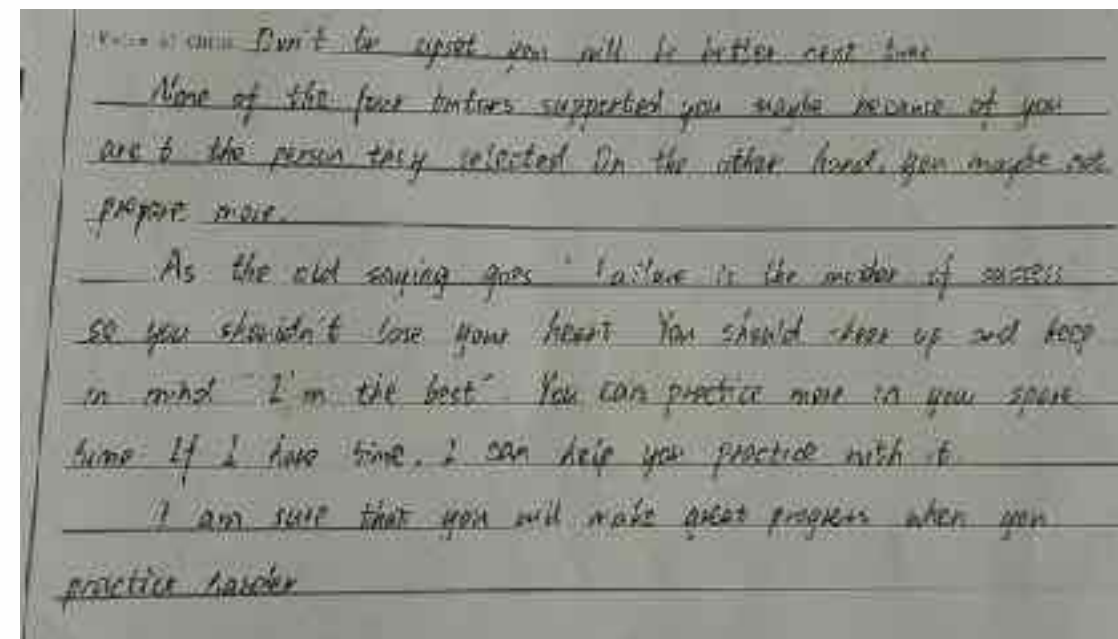 Voice of China Don't be upset you will be better next time
None of the four tutors supported you maybe because of you
are t the person they selected On the other hand, you maybe not
prepare more.
As the old saying goes " Failure is the mother of success
so you shouldn't lose your heart You should cheer up and keep
in mind "I'm the best". You can practice more in your spare
time If I have time, I can help you practice with it
I am sure that you will make great progress when you
practice harder